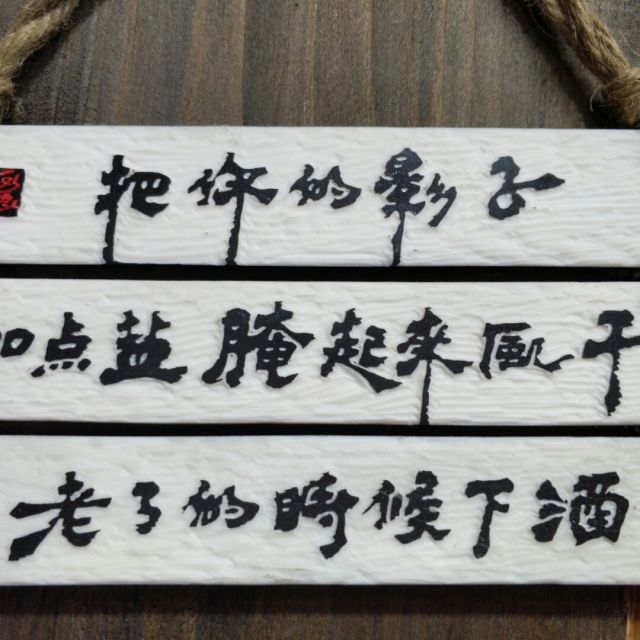 把你的影子
加点盐腌起来风干
老了的时候下酒